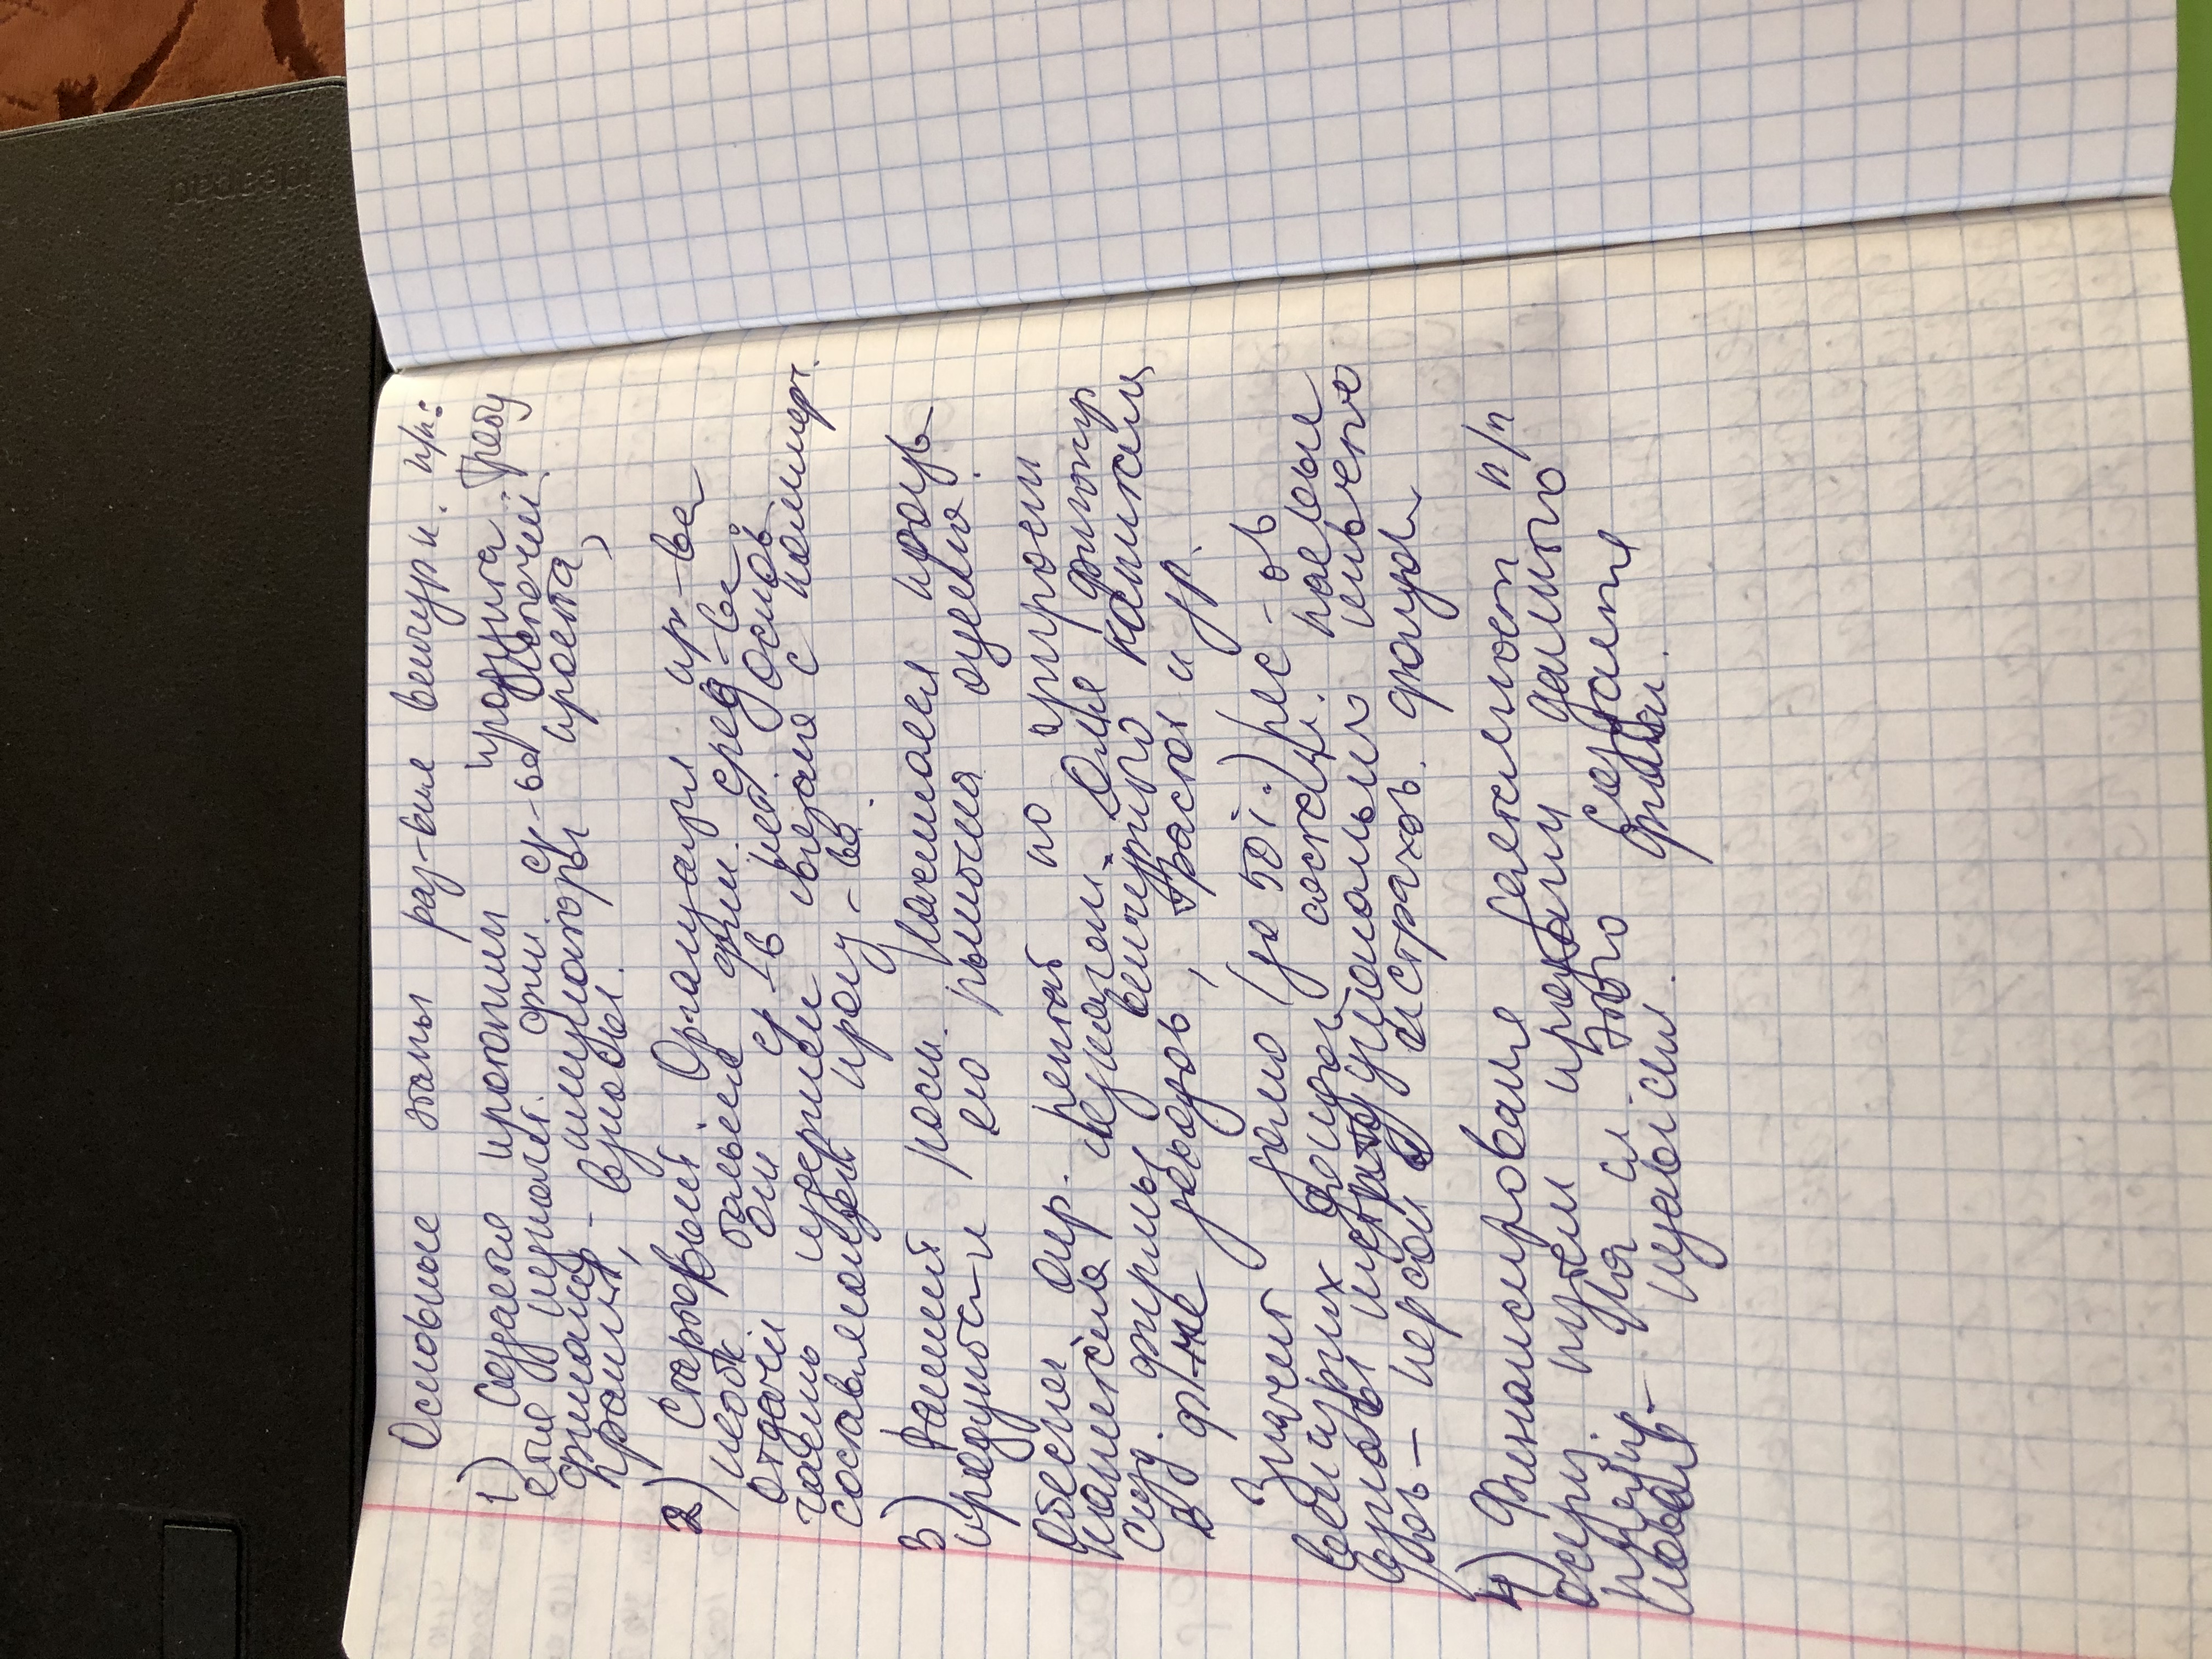 Основные этапы раз-вия венчурн. п/п:
1) Создается прототип продукта. Требу
ется незначит. фин. ср-ва. Источн.
финанср - инициаторы проекта,
грант, взносы.
2) Стартовый. Организация пр-ва
необх. большие фин. сред-ва.
Отдачи от ср-в нет. Основ
часть издержек связана с коммерч.
составляющей произ-ва.
3) Ранний рост. Начинается произв
продукта и его рыночная оценка.
Обеспеч. опр. рентаб но прирост
капитала незначит. Для финансир
созд. фирмы венчурного капитала
в ф-ме фондов, трастов и др.
Значит доля (до 50%) рес-ов
венчурных фондов состав. паевые
взносы институциональных инвесто
ров - и страхов. фонды
4) Финансирование деятельности п/п
осущ. путем продажи данного
На сл. этого создается
новая независим. фирм.